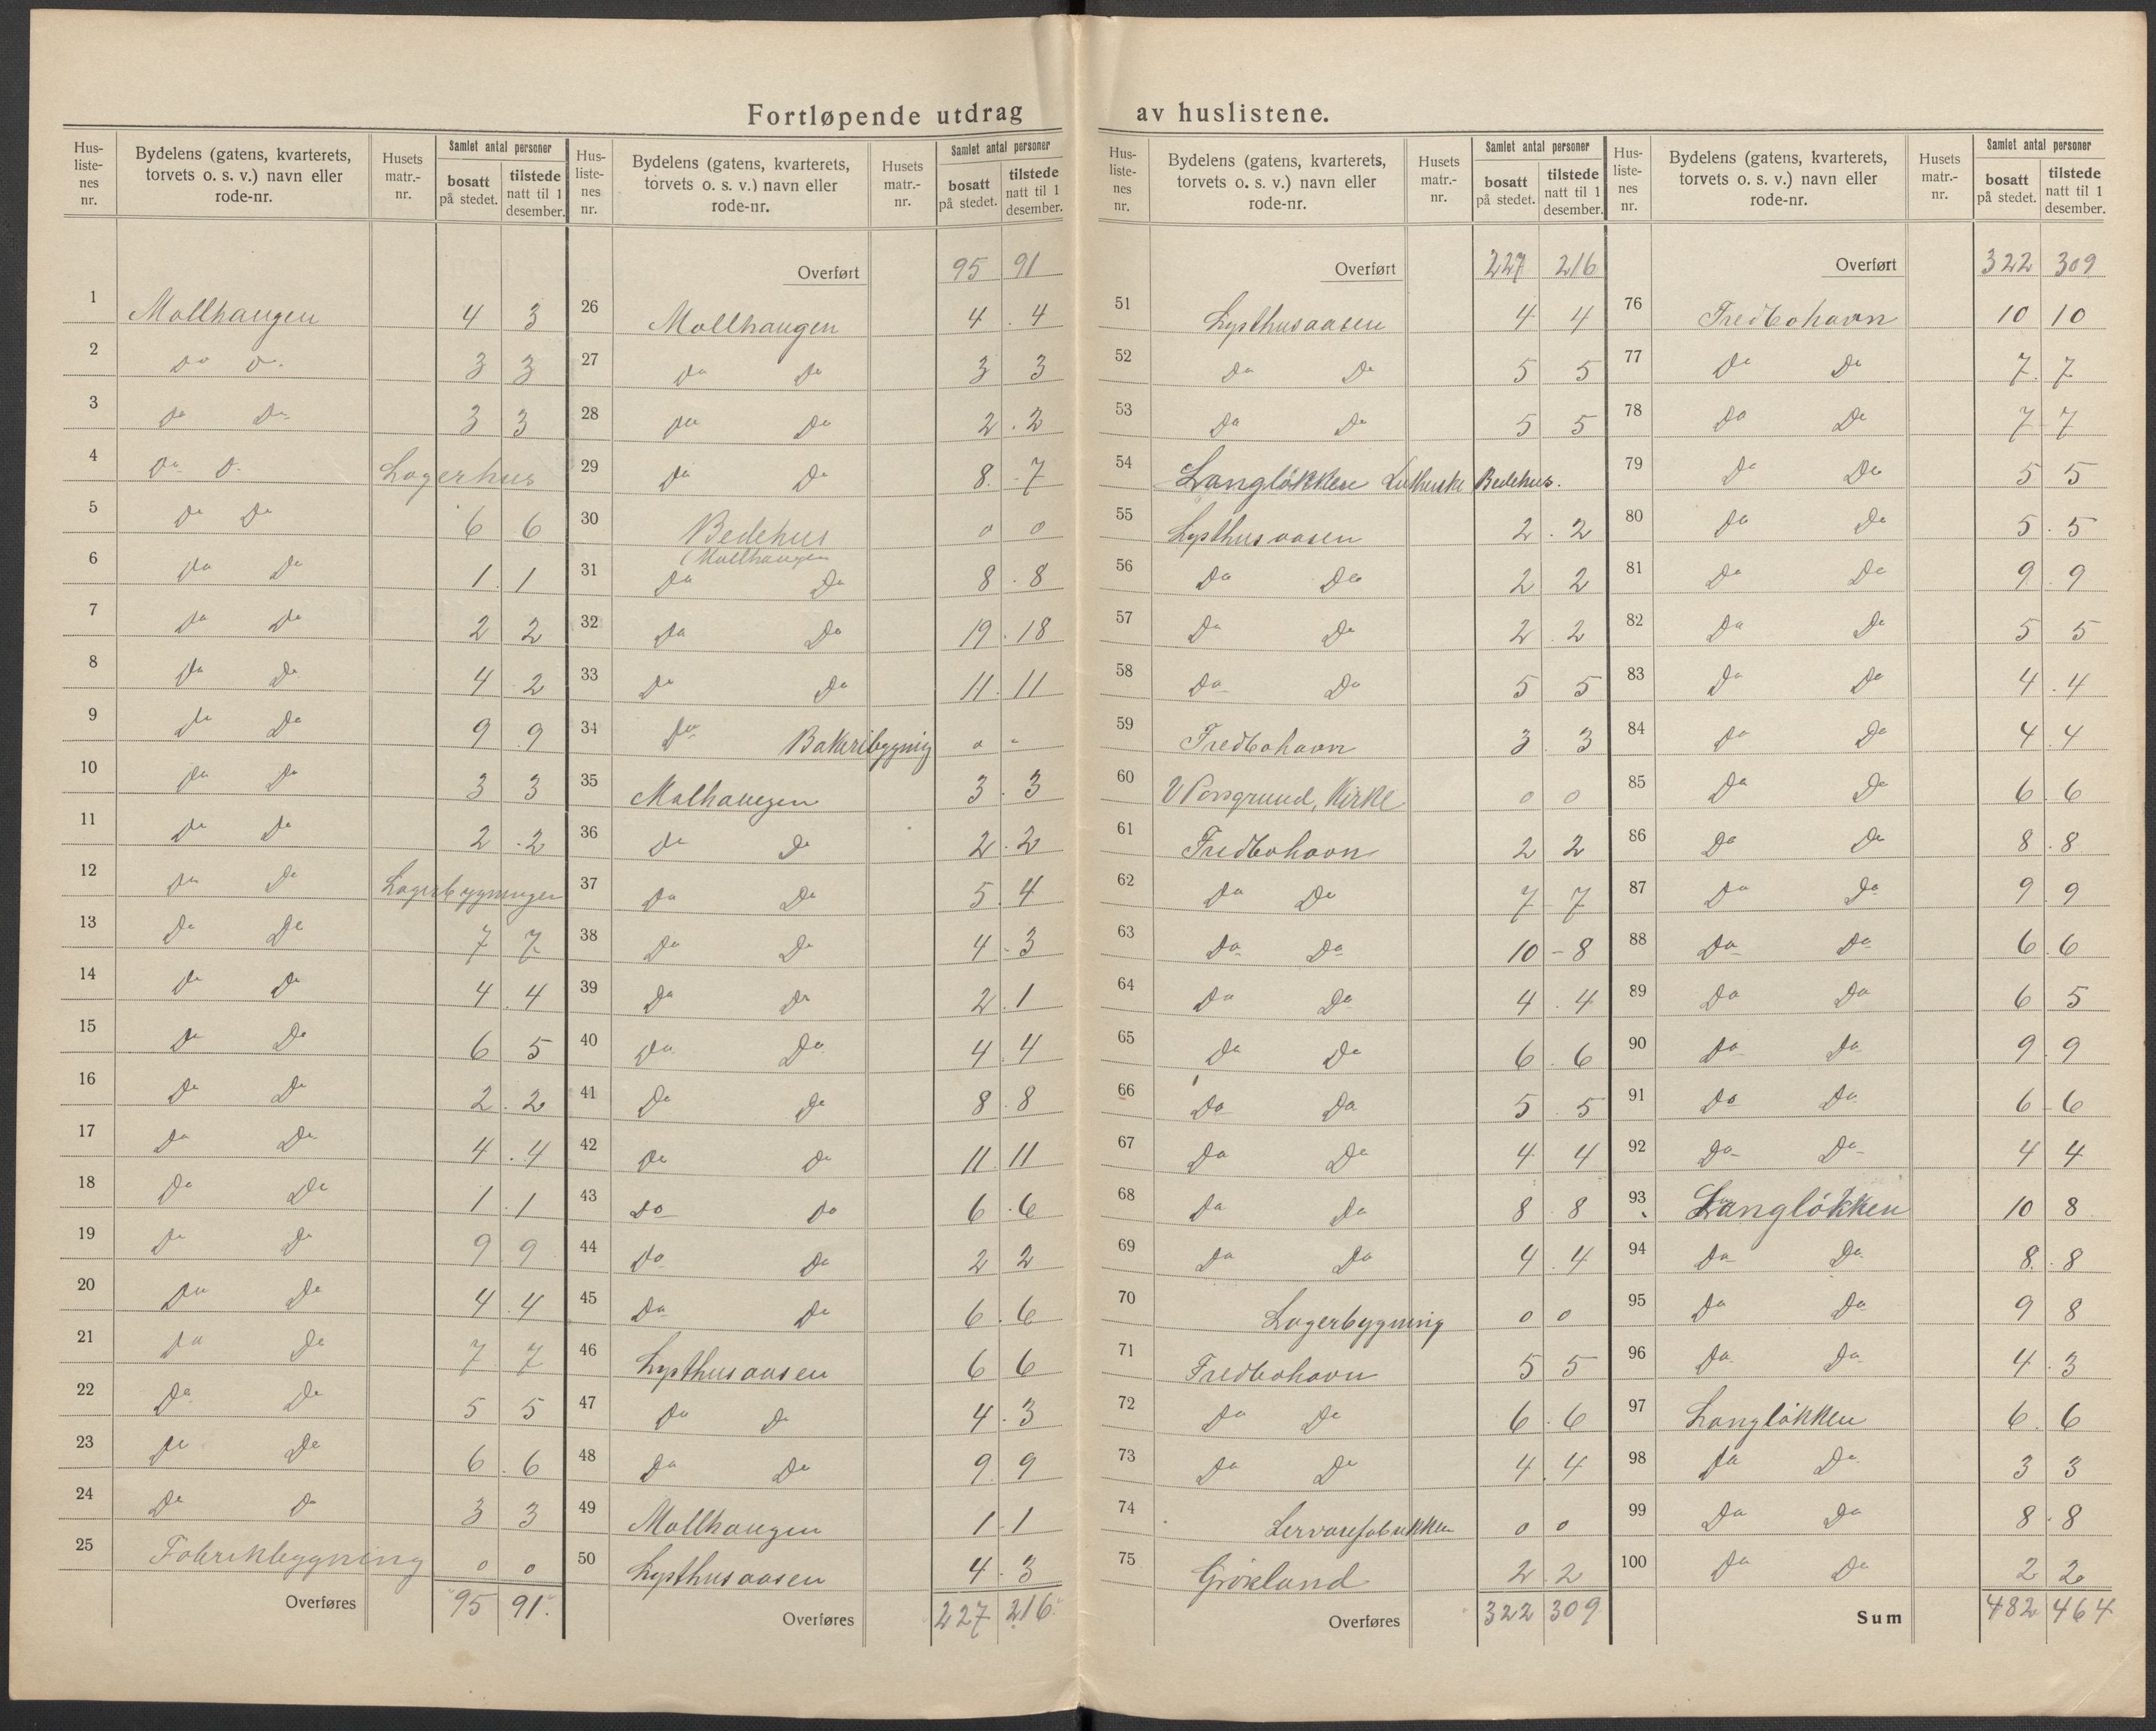 Fortløpende utdrag av huslistene.
Hus-liste-nes nr. | Bydelens (gatens, kvarterets, torvets o. s. v.) navn eller rode-nr. | Husets matr.-nr. | Samlet antal personer | bosatt på stedet. | tilstede natt til 1 desember.
1 Mollhaugen 4 3
2 Do Do 3 3
3 Do Do 3 3
4 Do Do Lagerhus
5 Do Do 6 6
6 Do Do 1 1
7 Do Do 2 2
8 Do Do 4 2
9 Do Do 9 9
10 Do Do 3 3
11 Do Do 2 2
12 Do Do Lagerbygninger
13 Do Do 7 7
14 Do Do 4 4
15 Do Do 6 5
16 Do Do 2 2
17 Do Do 4 4
18 Do Do 1 1
19 Do Do 9 9
20 Do Do 4 4
21 Do Do 7 7
22 Do Do 5 5
23 Do Do 6 6
24 Do Do 3 3
25 Fabrikbygning 0 0
Overføres 95 91
Hus-liste-nes nr. | Bydelens (gatens, kvarterets, torvets o. s. v.) navn eller rode-nr. | Husets matr.-nr. | Samlet antal personer | bosatt på stedet. | tilstede natt til 1 desember.
Overført 95 91
26 Mollhaugen 4 4
27 Do Do 3 3
28 Do Do 2 2
29 Do Do 8 7
30 Bedehus 0 0
(Mollhaugen
31 Do Do 8 8
32 Do Do 19 18
33 Do Do 11 11
34 Do Bakeribygnig 0 -
35 Molhaugen 3 3
36 Do Do 2 2
37 Do Do 5 4
38 Do Do 4 3
39 Do Do 2 1
40 Do Do 4 4
41 Do Do 8 8
42 Do Do 11 11
43 Do Do 6 6
44 Do Do 2 2
45 Do Do 6 6
46 Lysthusaasen 6 6
47 Do Do 4 3
48 Do Do 9 9
49 Mollhaugen 1 1
50 Lysthusaasen 4 3
Overføres 227 216
Hus-liste-nes nr. | Bydelens (gatens, kvarterets, torvets o. s. v.) navn eller rode-nr. | Husets matr.-nr. | Samlet antal personer | bosatt på stedet. | tilstede natt til 1 desember.
Overført 227 216
51 Lysthusaasen 4 4
52 Do Do 5 5
53 Do Do 5 5
54 Langløkken Lutherske Bedehus.
55 Lysthusaasen 2 2
56 Do Do 2 2
57 Do Do 2 2
58 Do Do 5 5
59 Fredbohavn 3 3
60 V Porsgrund, Kirke 0 0
61 Fredbohavn 2 2
62 Do Do 7 7
63 Do Do 10 - 8
64 Do Do 4 4
65 Do Do 6 6
66 Do Do 5 5
67 Do Do 4 4
68 Do Do 8 8
69 Do Do 4 4
70 Lagerbygning 0 0
71 Fredbohavn 5 5
72 Do Do 6 6
73 Do Do 4 4
74 Lervarefabrikken 0 0
75 Grønland 2 2
Overføres 322 309
Hus-liste-nes nr. | Bydelens (gatens, kvarterets, torvets o. s. v.) navn eller rode-nr. | Husets matr.-nr. | Samlet antal personer | bosatt på stedet. | tilstede natt til 1 desember.
Overført 322 309
76 Fredbohavn 10 10
77 Do Do 7 7
78 Do Do 7 7
79 Do Do 5 5
80 Do Do 5 5
81 Do Do 9 9
82 Do Do 5 5
83 Do Do 4 4
84 Do Do 4 4
85 Do Do 6 6
86 Do Do 8 8
87 Do Do 9 9
88 Do Do 6 6
89 Do Do 6 5
90 Do Do 9 9
91 Do Do 6 6
92 Do Do 4 4
93 Langløkken 10 8
94 Do Do 8 8
95 Do Do 9 8
96 Do Do 4 3
97 Langløkken 6 6
98 Do Do 3 3
99 Do Do 8 8
100 Do Do 2 2
Sum 482 464